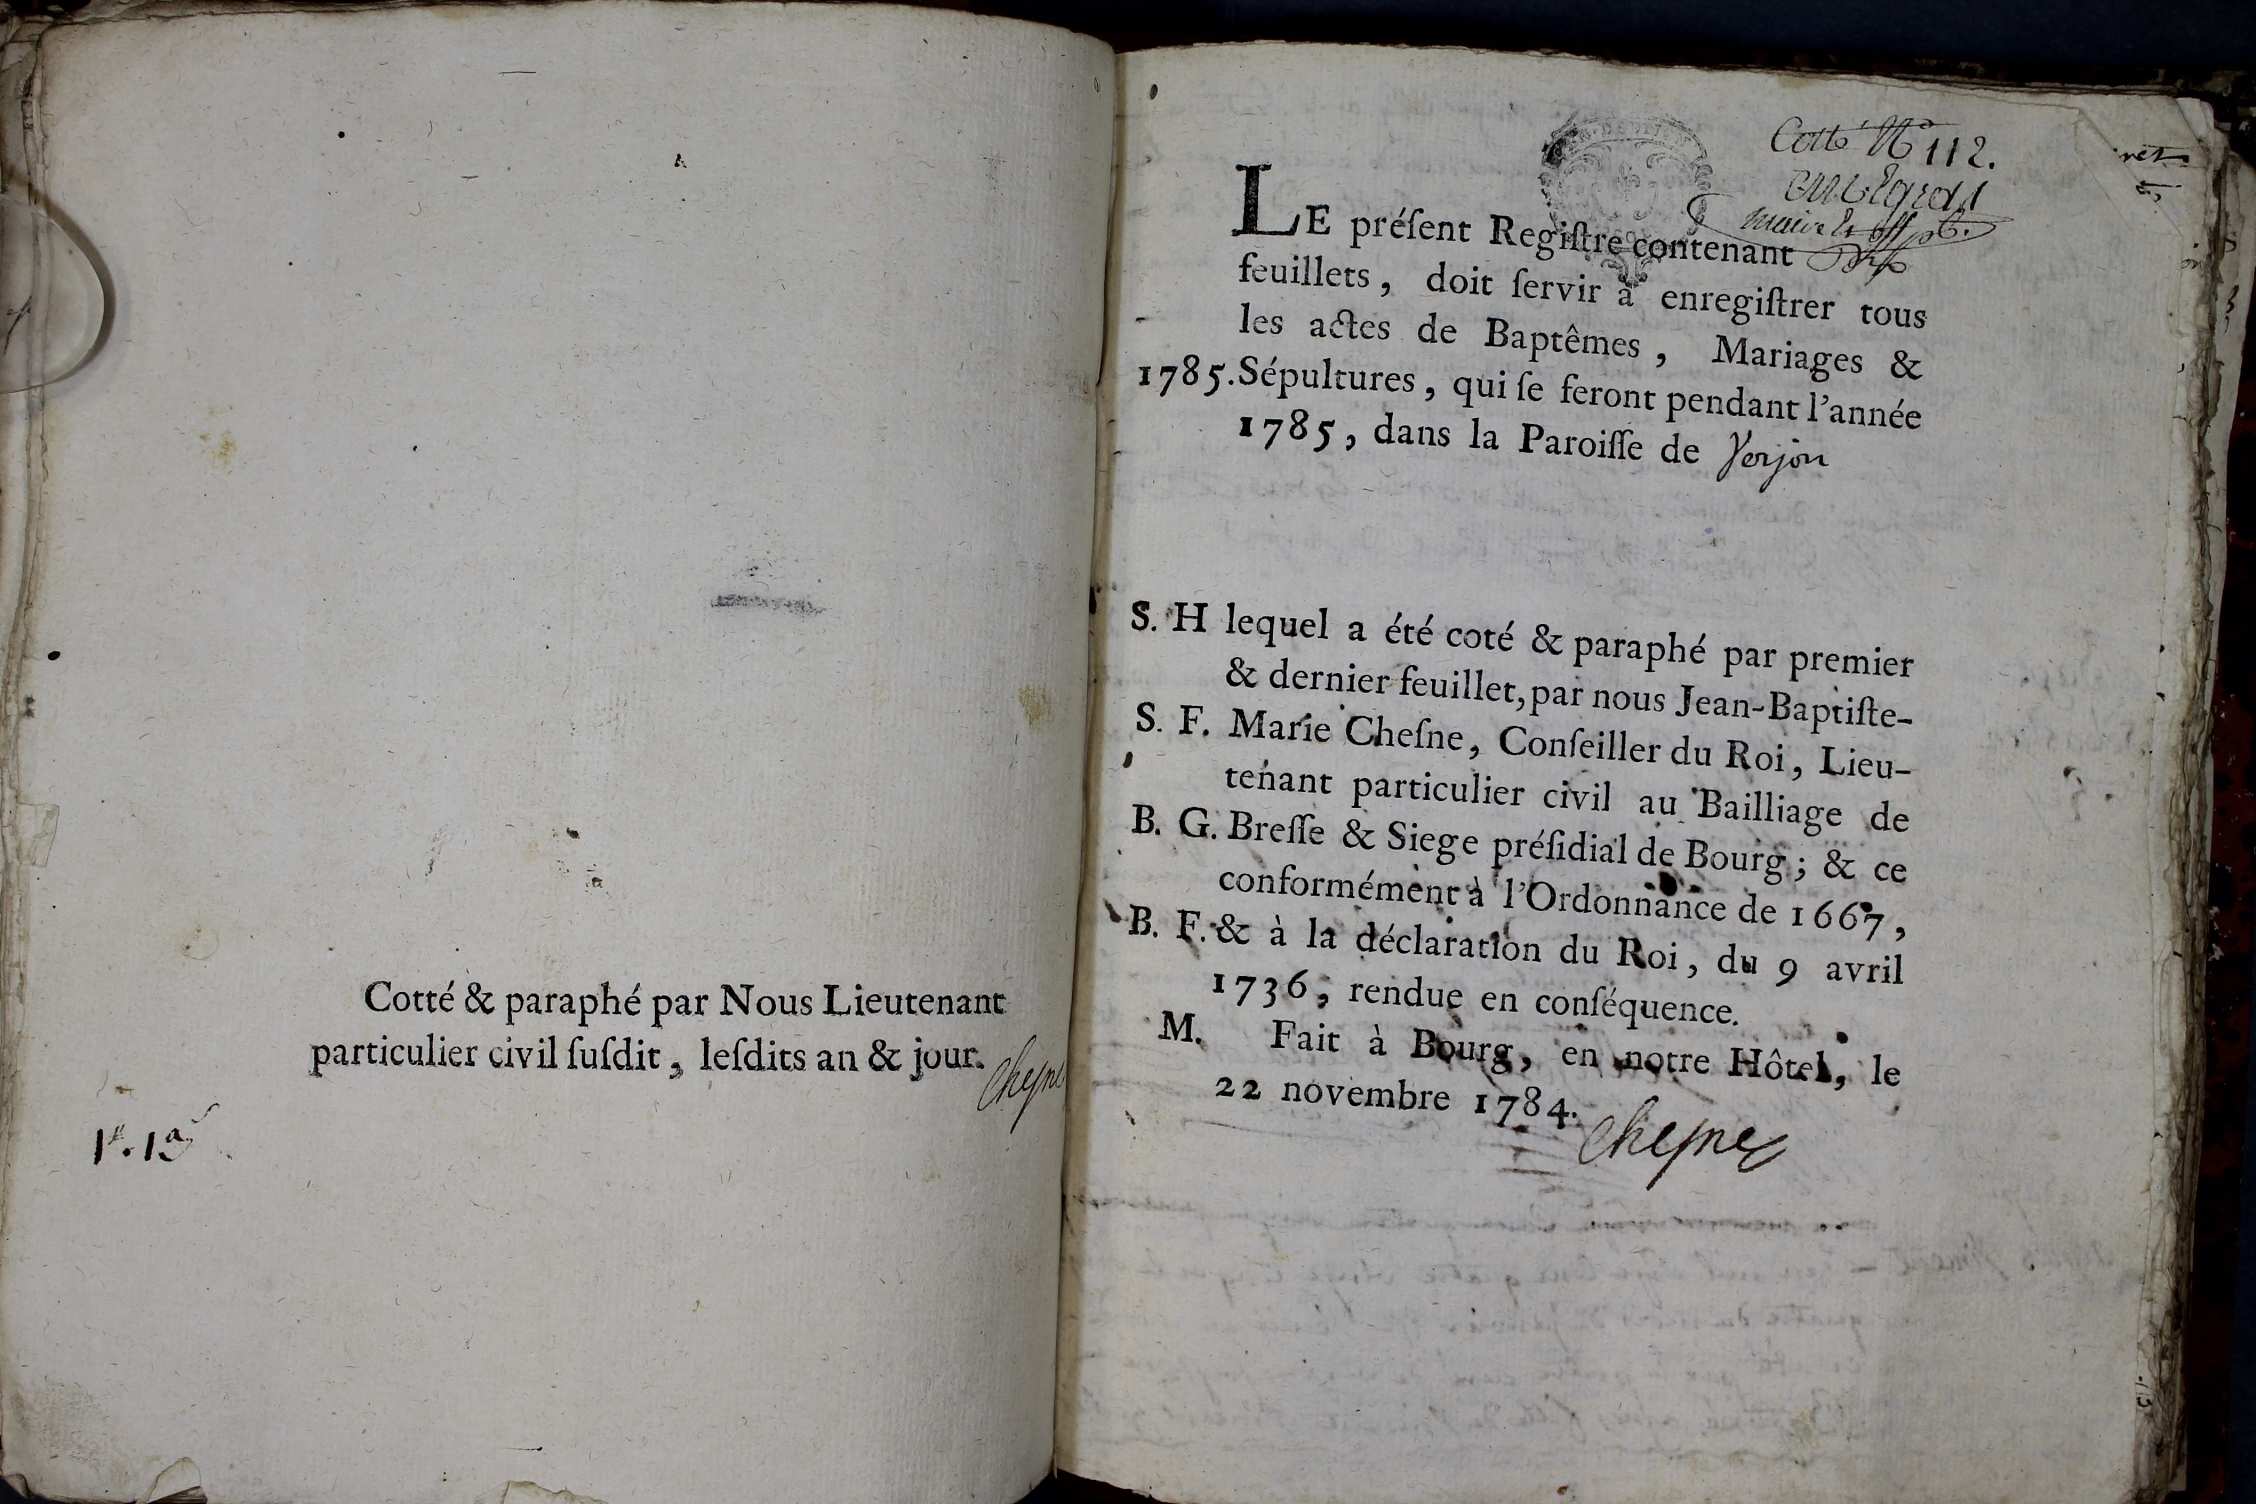 Cotté & paraphé par Nous Lieutenant
particulier civil ſuſdit, leſdits an & jour.
Cheſne
Cotté N° 112.
LE préſent Regiſtre contenant
feuillets, doit ſervir à enregiſtrer tous
les actes de Baptêmes, Mariages &
1785. Sépultures, qui ſe feront pendant l'année
1785, dans la Paroiſſe de Verjon
S. H lequel a été coté & paraphé par premier
& dernier feuillet, par nous Jean-Baptiſte-
S. F. Marie Cheſne, Conſeiller du Roi, Lieu-
tenant particulier civil au Bailliage de
B. G. Breſſe & Siege préſidial de Bourg; & ce
conformément à l'Ordonnance de 1667,
B. F. & à la déclaration du Roi, du 9 avril
1736, rendue en conſéquence.
M. Fait à Bourg, en notre Hôtel, le
22 novembre 1784.
Cheſne